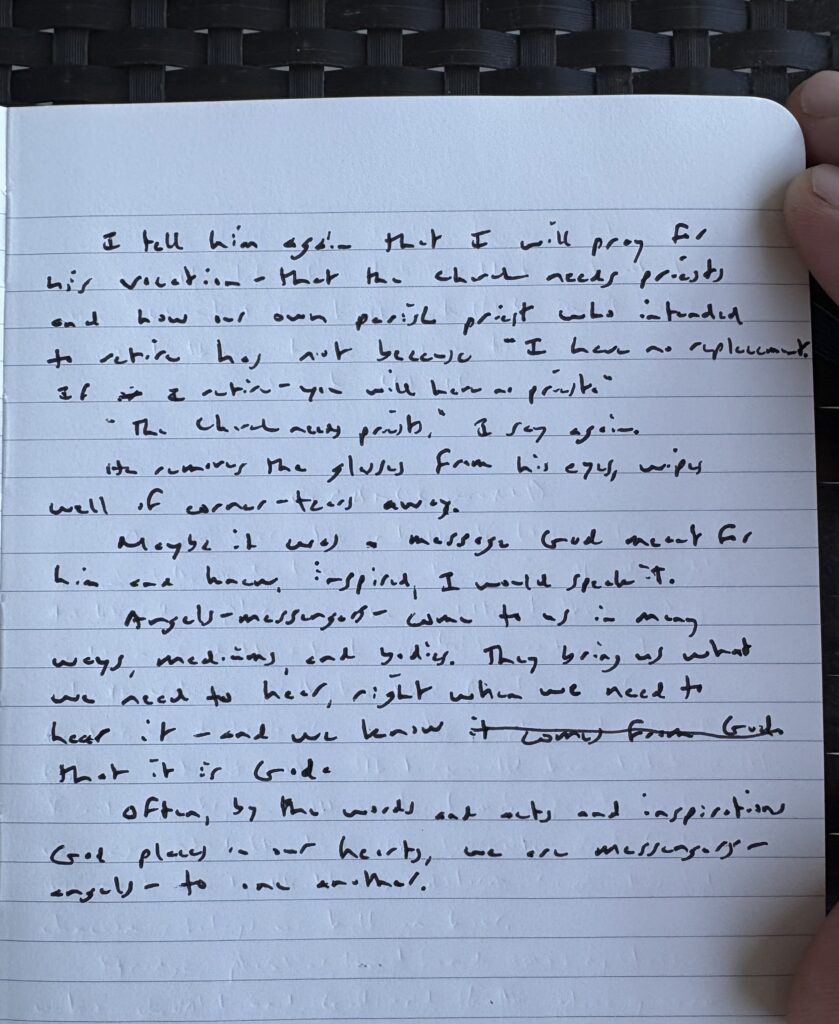 I tell him again that I will pray for
his vocation - that the church needs priests
and how our own parish priest who intended
to retire has not because "I have no replacement.
If I retire - you will have no priest."
"The Church needs priests," I say again.
He removes the glasses from his eyes, wipes
well of corner-tears away.
Maybe it was a message God meant for
him and knew, inspired, I would speak it.
Angels-messengers- come to us in many
ways, mediums, and bodies. They bring us what
we need to hear, right when we need to
hear it - and we know it comes from God.
that it is God.
Often, by the words and acts and inspirations
God places in our hearts, we are messengers-
angels- to one another.